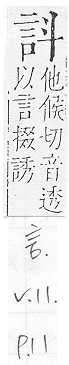 訃
他候切音透
以言掇誘
言.
V.11.
P.11